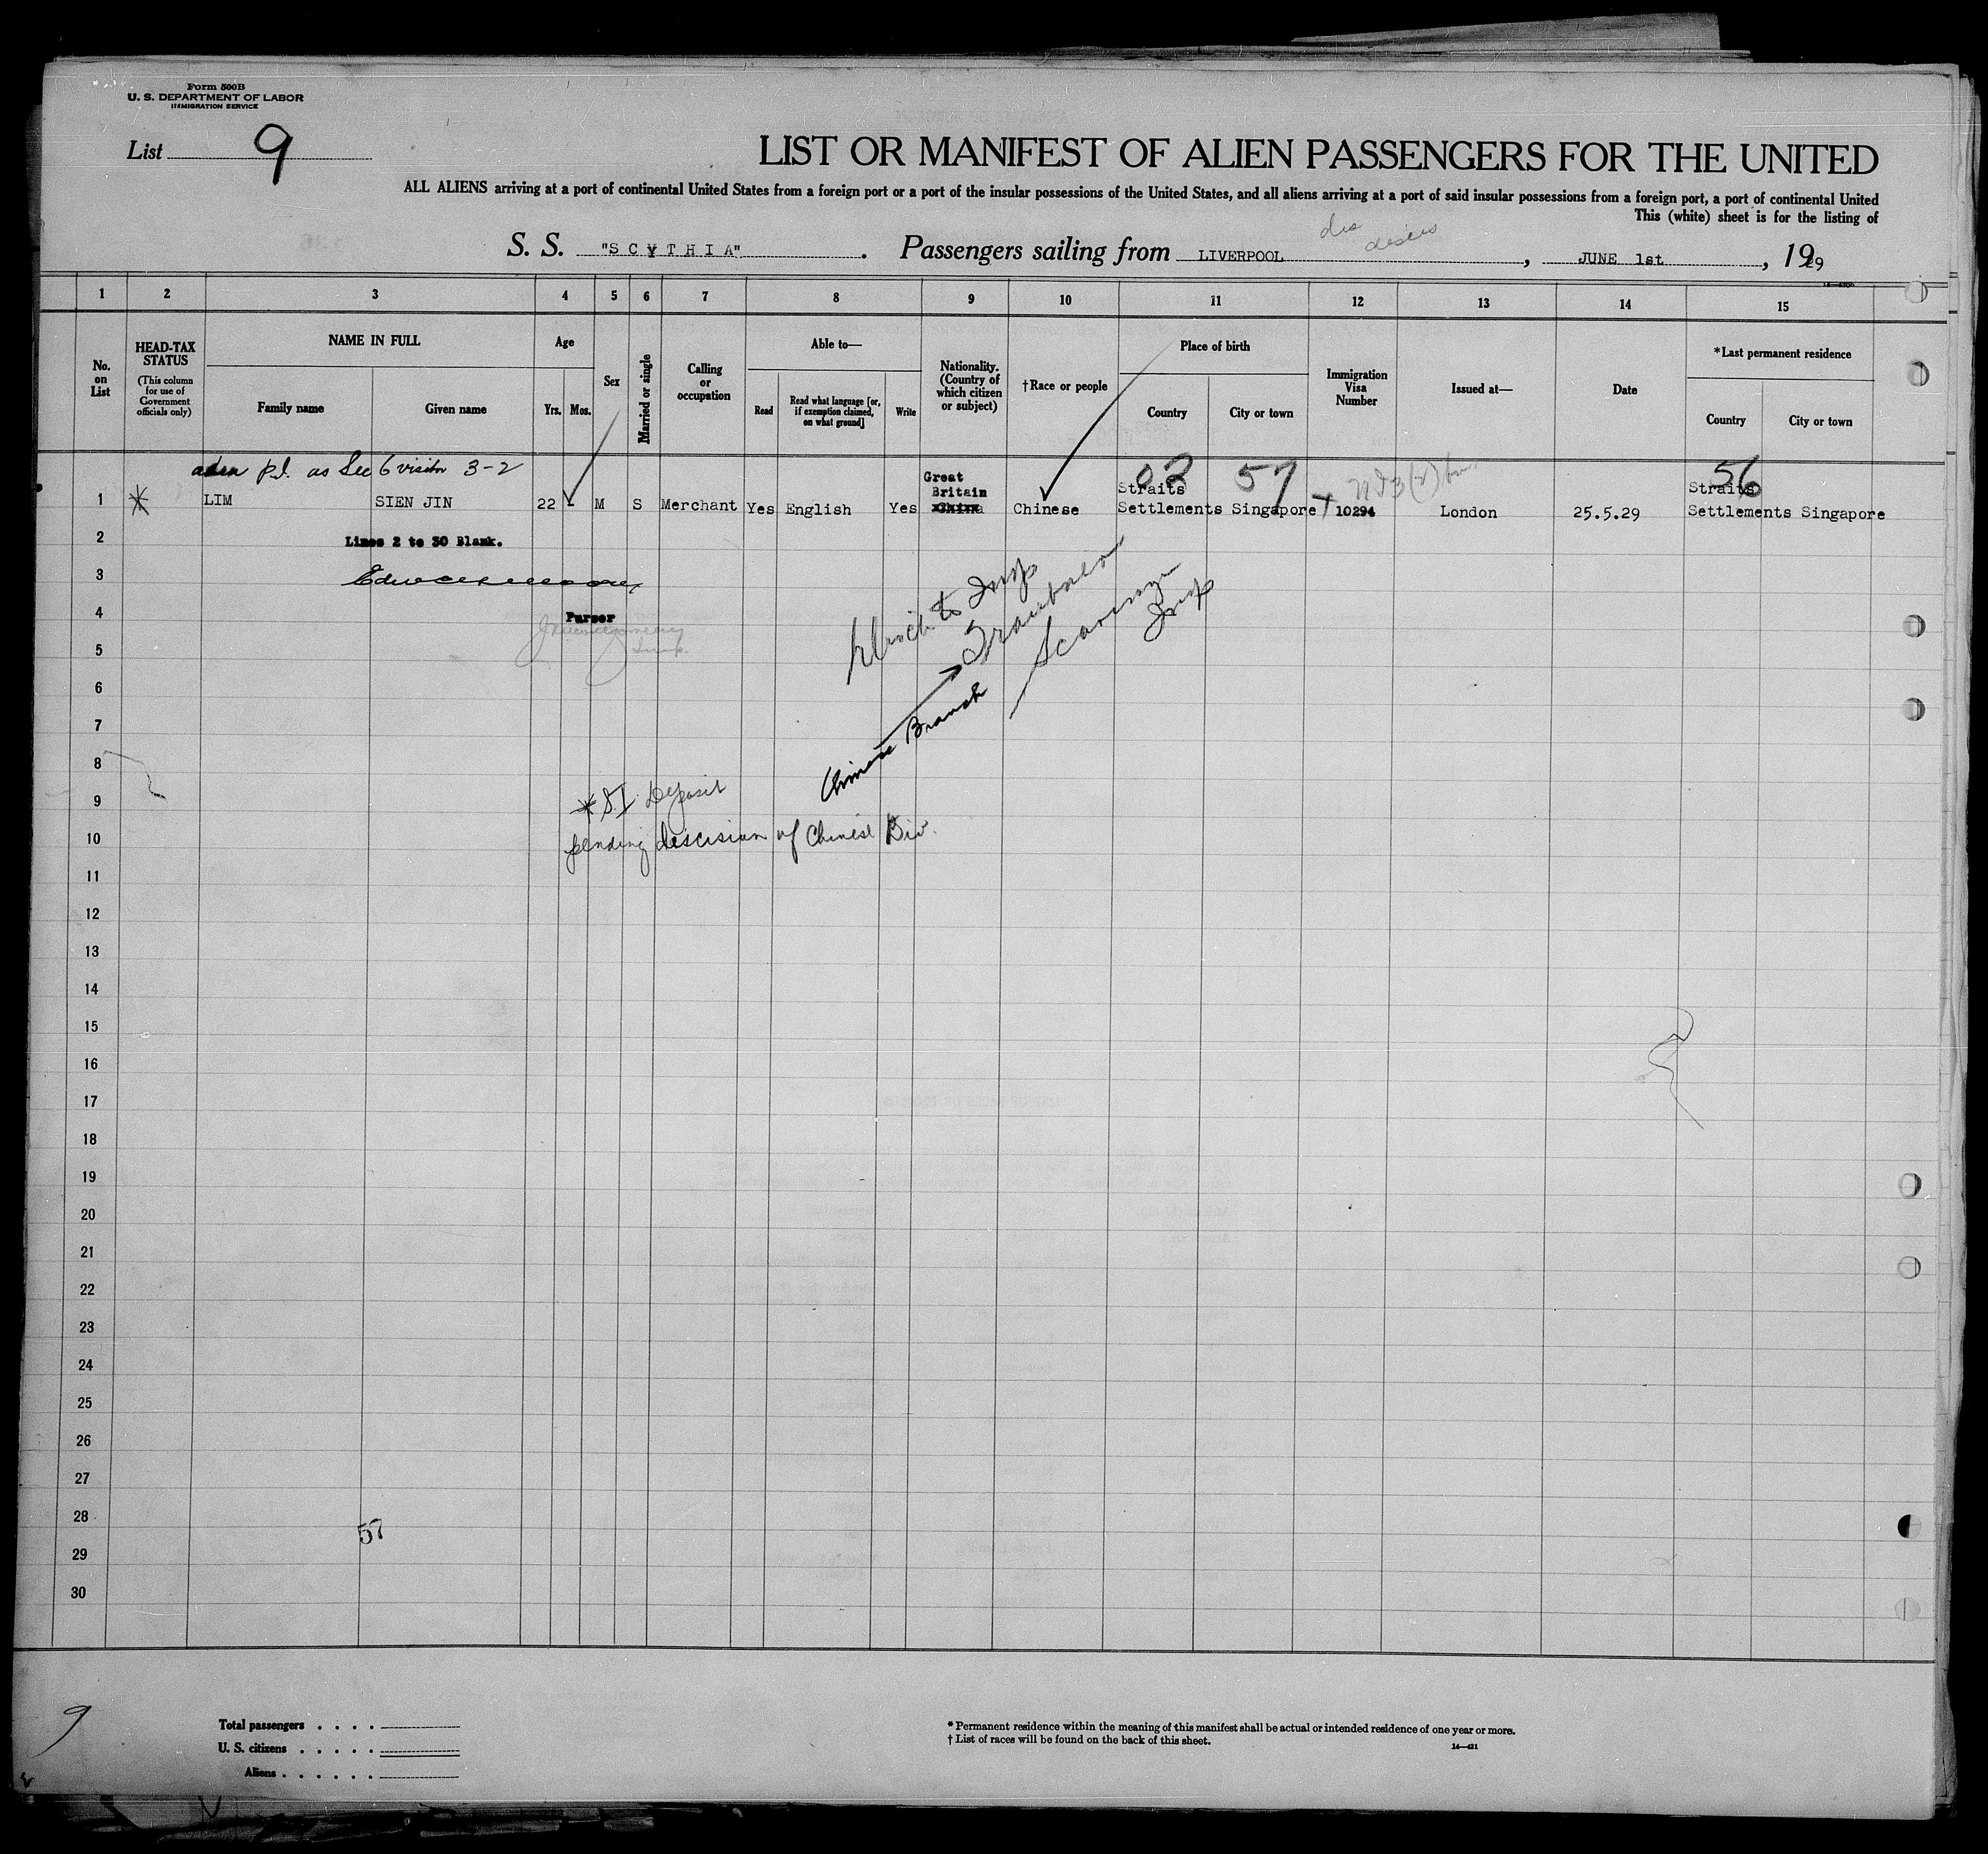 Form 500B
U. S. DEPARTMENT OF LABOR
IMMIGRATION SERVICE
List 9
LIST OR MANIFEST OF ALIEN PASSENGERS FOR THE UNITED
ALL ALIENS arriving at a port of continental United States from a foreign port or a port of the insular possessions of the United States, and all aliens arriving at a port of said insular possessions from a foreign port, a port of continental United
This (white) sheet is for the listing of
S. S. "SCYTHIA" . Passengers sailing from LIVERPOOL , JUNE 1st , 1929
1 2 3 4 5 6 7 8 9 10 11 12 13 14 15
No. on List
HEAD-TAX STATUS
(This column for use of Government officials only)
NAME IN FULL
Family name
Given name
Age
Yrs.
Mos.
Sex
Married or single
Calling or occupation
Able to—
Read
Read what language [or, if exemption claimed, on what ground]
Write
Nationality. (Country of which citizen or subject)
†Race or people
Place of birth
Country
City or town
Immigration Visa Number
Issued at—
Date
*Last permanent residence
Country
City or town
adm p.l. as Sec 6 visitor 3-2
02 57 56
Great Britain
Straits Straits
1 LIM SIEN JIN 22 - M S Merchant Yes English Yes China Chinese Settlements Singapore 10294 London 25.5.29 Settlements Singapore
2 Lines 2 to 30 Blank.
3
4 Purser
5
6
7
Chinese Branch
8
9 * S.I. Deposit
10 pending descision of Chinese Div.
11
12
13
14
15
16
17
18
19
20
21
22
23
24
25
26
27
28 57
29
30
9
Total passengers . . . .
U. S. citizens . . . . .
Aliens . . . . . .
* Permanent residence within the meaning of this manifest shall be actual or intended residence of one year or more.
† List of races will be found on the back of this sheet.
14—421